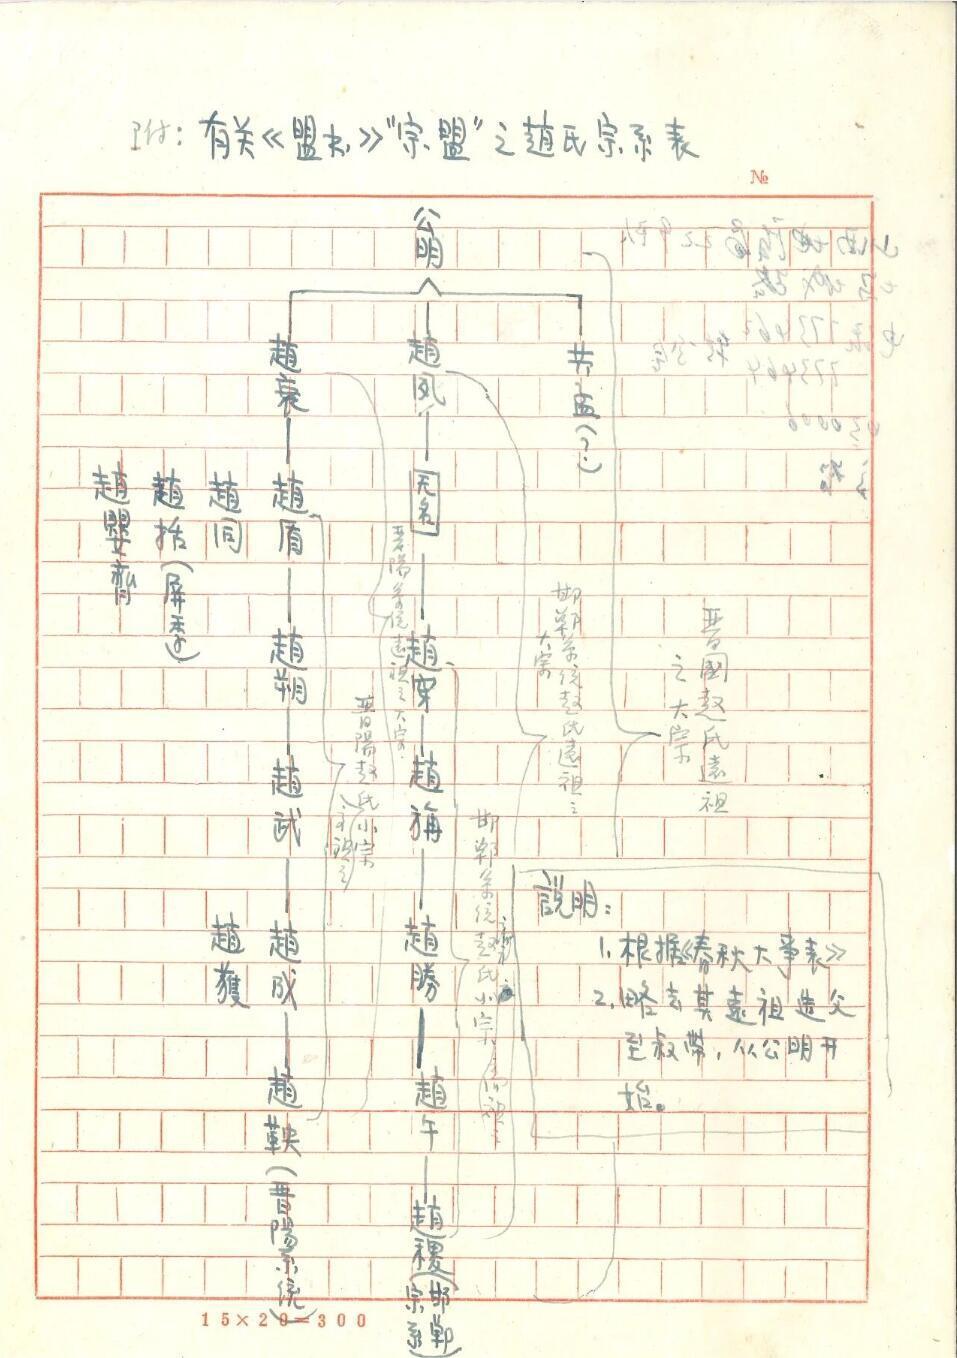 附：有关《盟书》“宗盟”之趙氏宗系表
№
公明
共孟(?)
趙夙
无名
趙穿
趙旃
趙勝
趙午
趙稷(邯鄲宗系)
趙衰
趙盾
趙朔
趙武
趙成
趙鞅(晋陽系統)
趙同
趙括(屏季)
趙嬰齊
趙獲
晋國趙氏遠祖
之大宗
邯鄲系統趙氏遠祖之
大宗
邯鄲系統趙氏小宗
晋陽系統遠祖之大宗
晋陽趙氏小宗
説明：
1. 根据《春秋大事表》
2. 略去其遠祖造父
至叔带，从公明开
始。
15×20=300